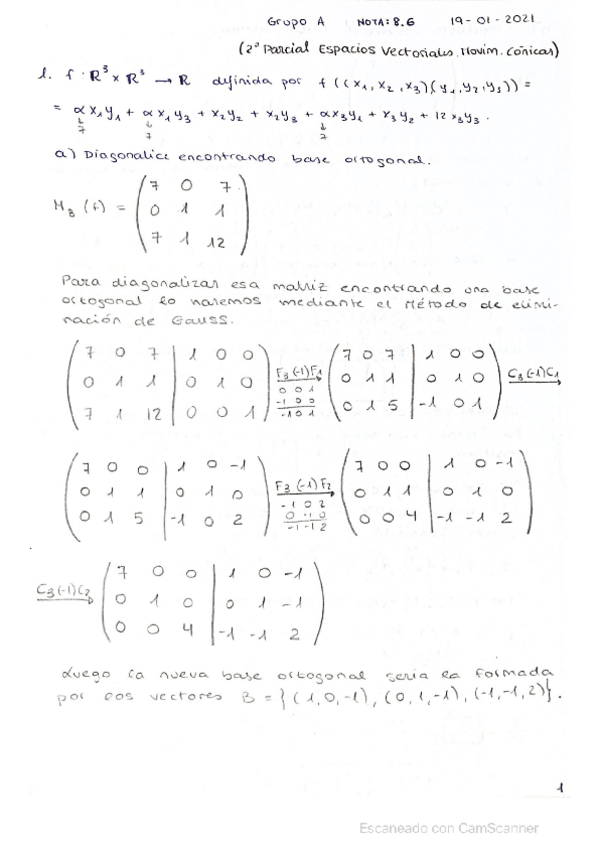 Grupo A NOTA: 8.6 19-01-2021
(2º Parcial Espacios Vectoriales. Movim. Cónicas)
1. f: R³ x R³ → R definida por f((x₁, x₂, x₃)(y₁, y₂, y₃)) =
= αx₁y₁ + αx₁y₃ + x₂y₂ + x₂y₃ + αx₃y₁ + x₃y₂ + 12x₃y₃.
↓ ↓ ↓
7 7 7
a) Diagonalice encontrando base ortogonal.
7 0 7
M_B (f) = 0 1 1
7 1 12
Para diagonalizar esa matriz encontrando una base
ortogonal lo haremos mediante el Método de elimi-
nación de Gauss.
7 0 7 | 1 0 0 F₃(-1)F₁ 7 0 7 | 1 0 0
0 1 1 | 0 1 0 0 0 1 0 1 1 | 0 1 0 C₃(-1)C₁
7 1 12 | 0 0 1 -1 0 0 0 1 5 | -1 0 1
-1 0 1
7 0 0 | 1 0 -1 F₃(-1)F₂ 7 0 0 | 1 0 -1
0 1 1 | 0 1 0 -1 0 2 0 1 1 | 0 1 0
0 1 5 | -1 0 2 0 -1 0 0 0 4 | -1 -1 2
-1 -1 2
7 0 0 | 1 0 -1
C₃(-1)C₂ 0 1 0 | 0 1 -1
0 0 4 | -1 -1 2
Luego la nueva base ortogonal sería la formada
por los vectores B = {(1, 0, -1), (0, 1, -1), (-1, -1, 2)}.
1
Escaneado con CamScanner